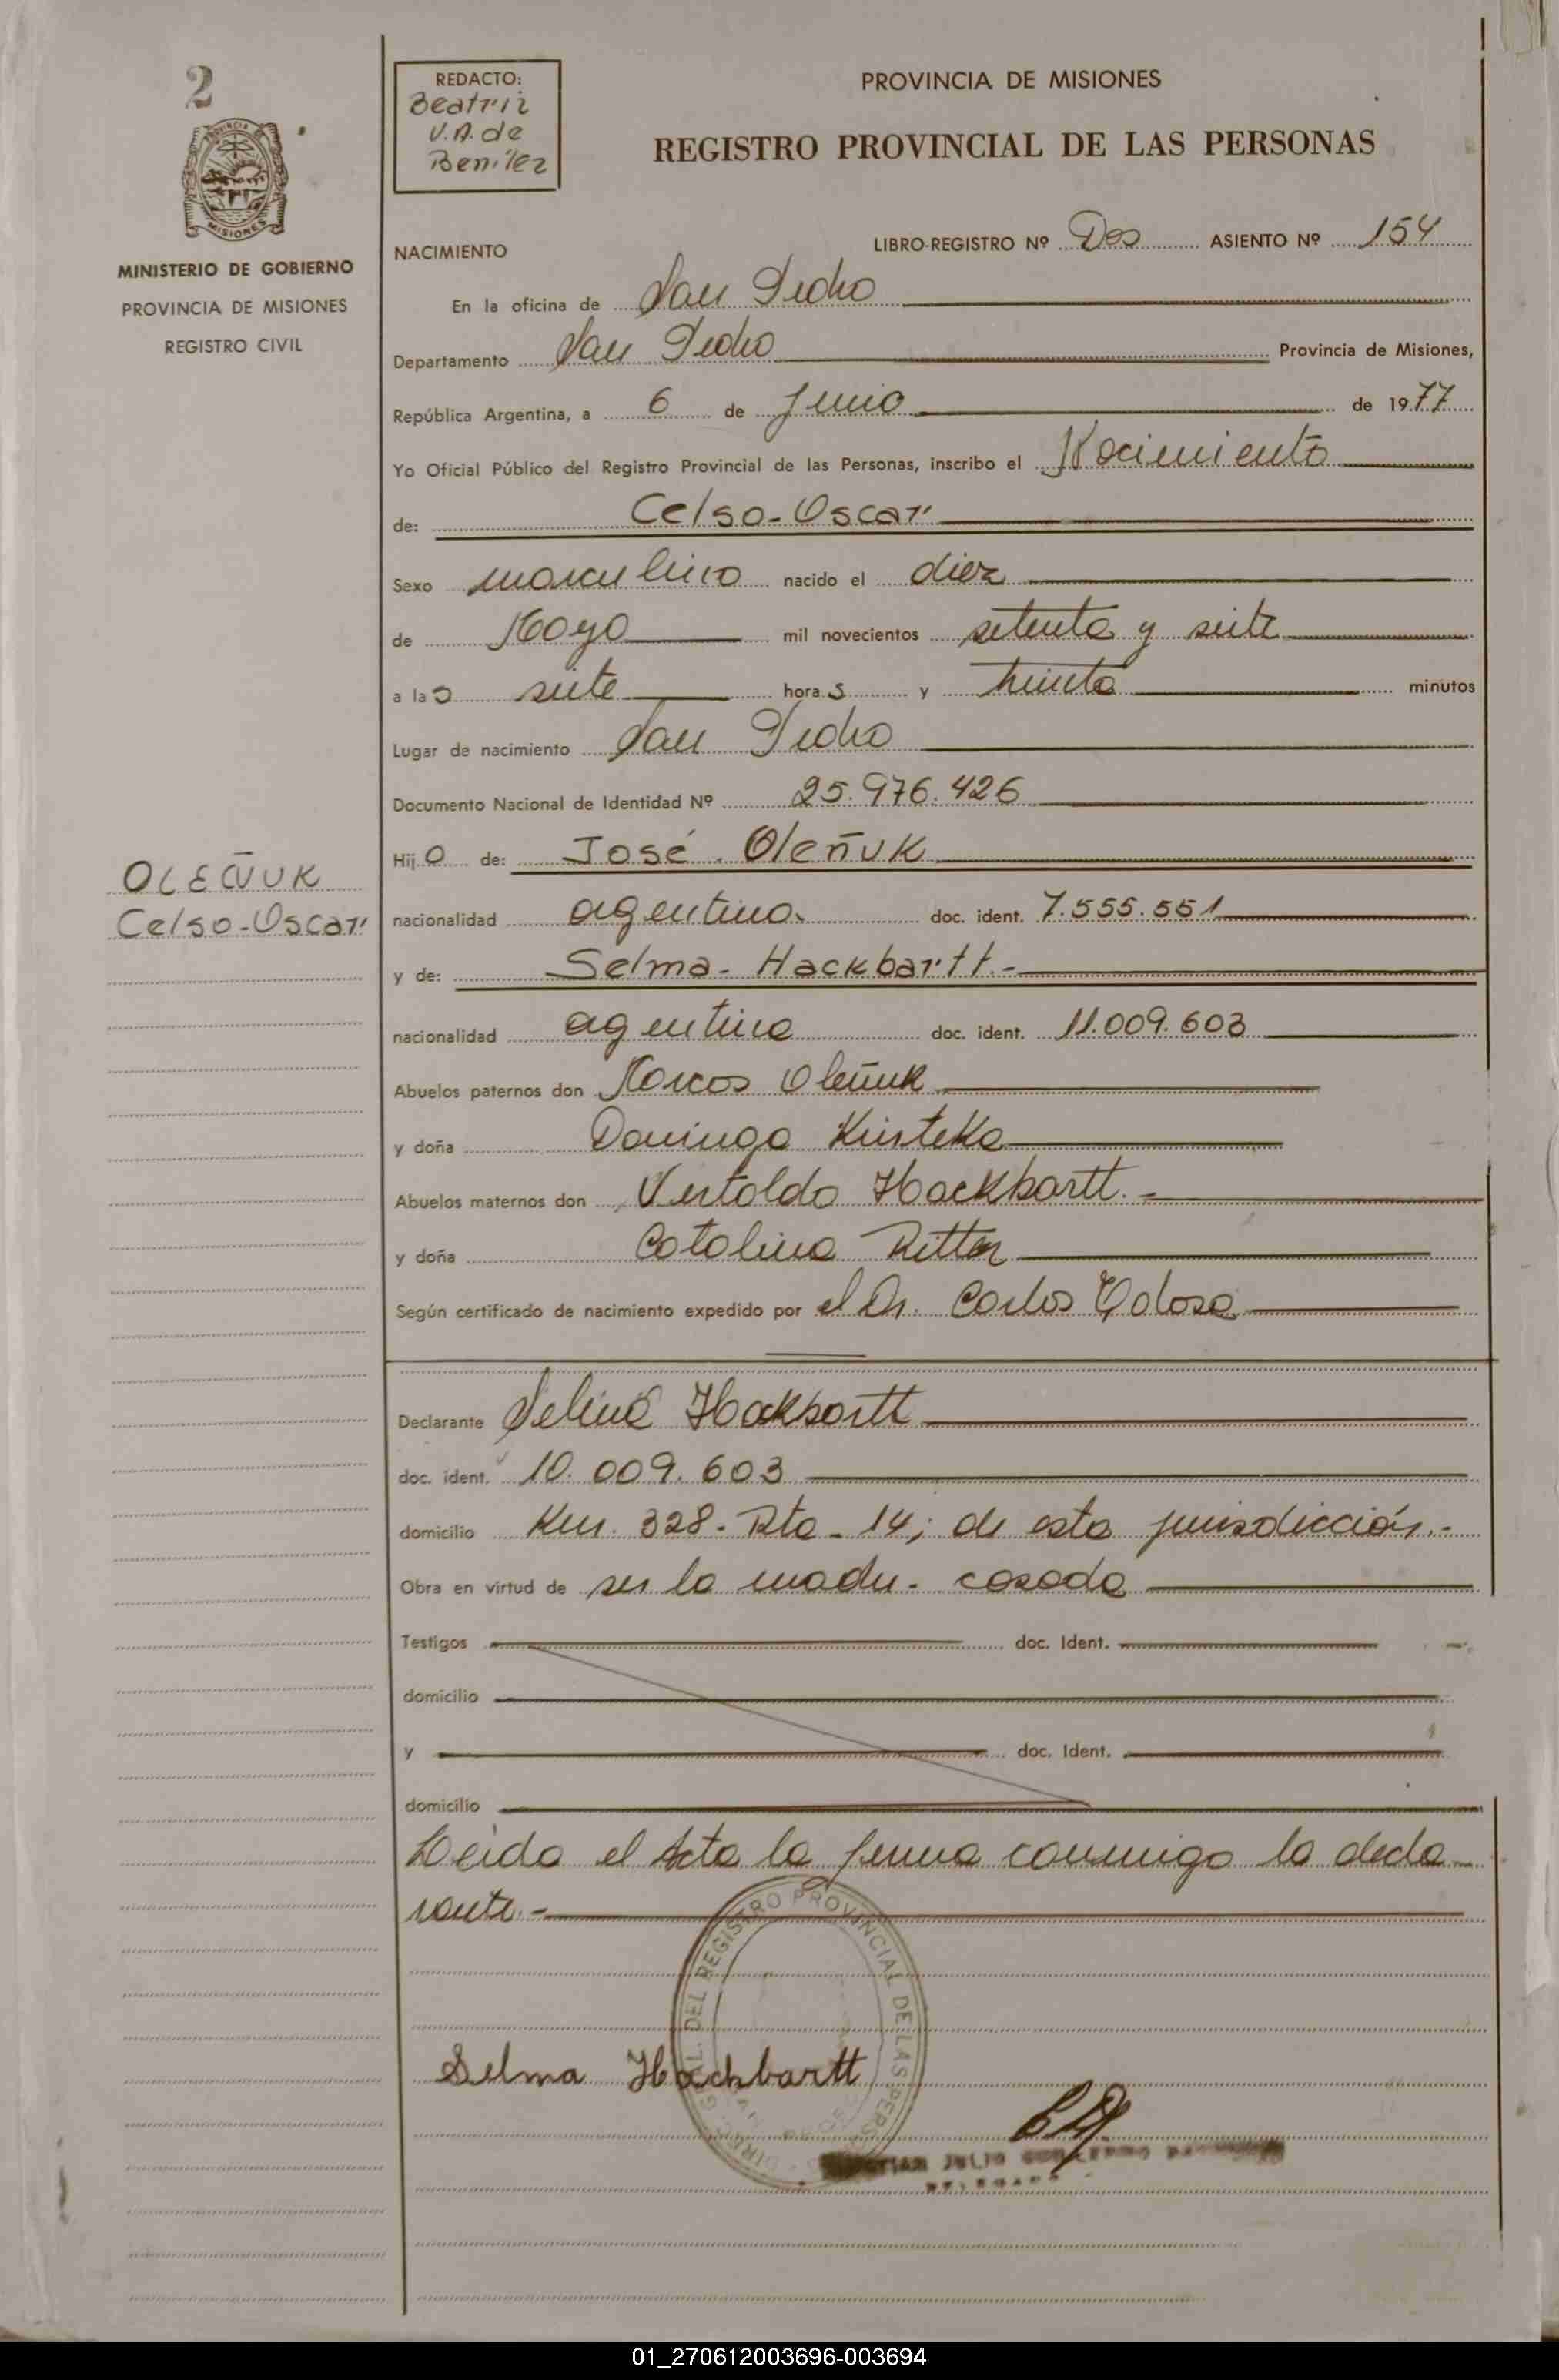 2
MINISTERIO DE GOBIERNO
PROVINCIA DE MISIONES
REGISTRO CIVIL
OLEÑUK
Celso-Oscar
REDACTO:
Beatriz
V.A. de
Benítez
PROVINCIA DE MISIONES
REGISTRO PROVINCIAL DE LAS PERSONAS
NACIMIENTO
LIBRO-REGISTRO Nº Dos ASIENTO Nº 154
En la oficina de San Pedro
Departamento San Pedro Provincia de Misiones,
República Argentina, a 6 de Junio de 1977
Yo Oficial Público del Registro Provincial de las Personas, inscribo el Nacimiento
de: Celso-Oscar
Sexo masculino nacido el diez
de Mayo mil novecientos setenta y siete
a las siete horas y treinta minutos
Lugar de nacimiento San Pedro
Documento Nacional de Identidad Nº 25.976.426
Hijo de: José Oleñuk
nacionalidad argentina doc. ident. 7.555.551
y de: Selma - Hackbartt.-
nacionalidad argentina doc. ident. 11.009.603
Abuelos paternos don Marcos Oleñuk
y doña Dominga
Abuelos maternos don Vertoldo Hackbartt.-
y doña Catalina Ritter
Según certificado de nacimiento expedido por el Dr. Carlos
Declarante Selma Hackbartt
doc. ident. 10.009.603
domicilio Km. 328 - Rta - 14; de esta jurisdicción.-
Obra en virtud de ser la madre - casada
Testigos doc. Ident.
domicilio
y doc. Ident.
domicilio
Leída el Acta la firma conmigo la decla
rante.-
DIREC. GRAL. DEL REGISTRO PROVINCIAL DE LAS PERSONAS
Selma Hackbartt
JULIO
01_270612003696-003694